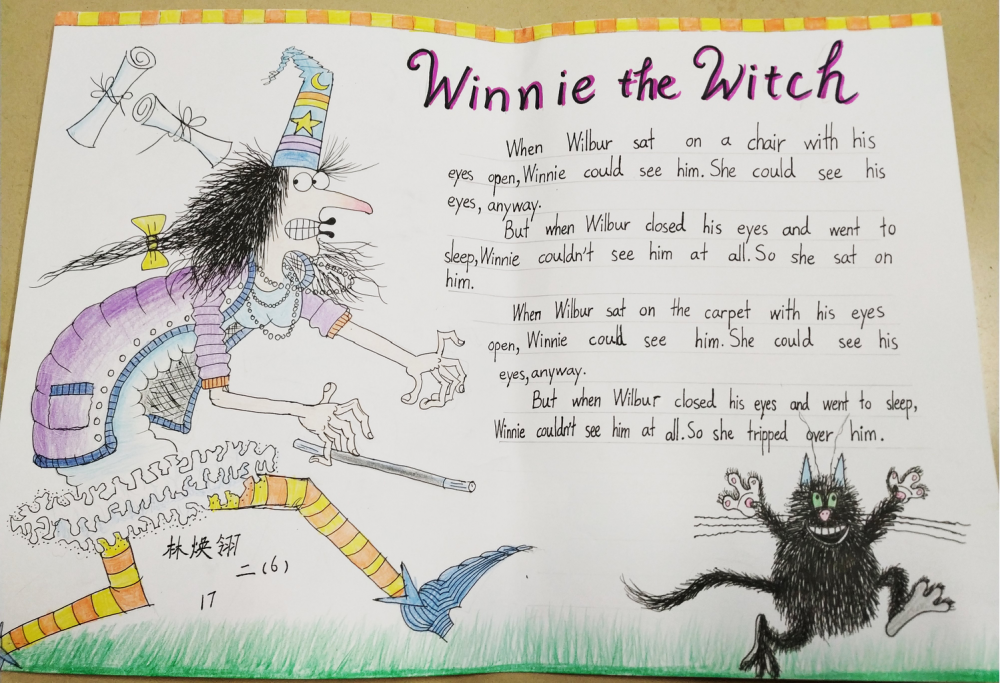 Winnie the Witch
When Wilbur sat on a chair with his
eyes open, Winnie could see him. She could see his
eyes, anyway.
But when Wilbur closed his eyes and went to
sleep, Winnie couldn't see him at all. So she sat on
him.
When Wilbur sat on the carpet with his eyes
open, Winnie could see him. She could see his
eyes, anyway.
But when Wilbur closed his eyes and went to sleep,
Winnie couldn't see him at all. So she tripped over him.
林焕翎
二(6)
17